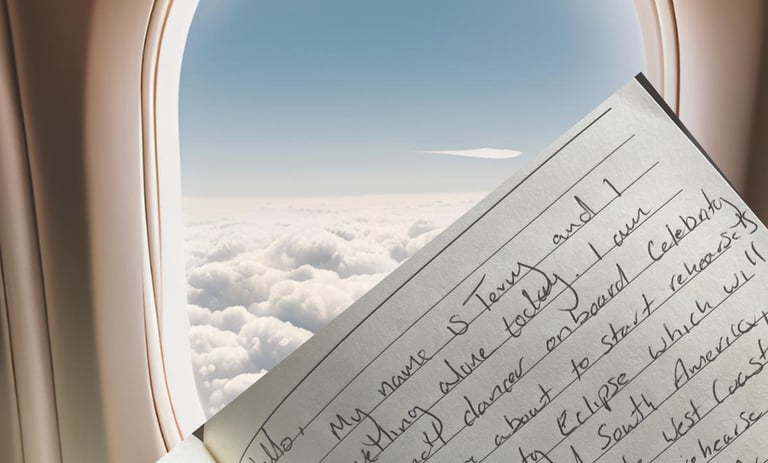 Hello,
My name is Terry and I
alone today. I am
dancer onboard Celebrity
about to start rehearsals
Eclipse which will
South America,
West Coast
rehearse